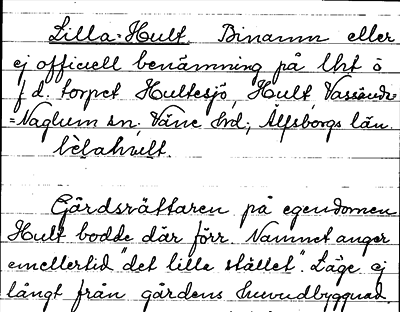 Lilla-Hult. Binamn eller
ej officiell benämning på lht å
f.d. torpet Hultesjö, Hult, Vassända-
=Naglum sn. Väne hd; Älfsborgs län.
Gårdsrättaren på egendomen
Hult bodde där förr. Namnet anger
emellertid "det lilla stället". Läge ej
långt från gårdens huvudbyggnad.